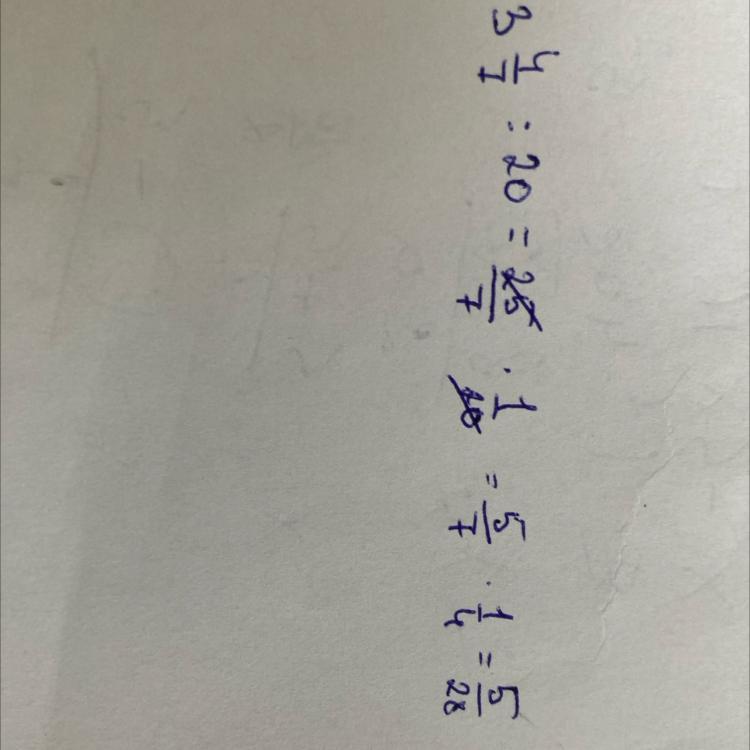 3 4/7 : 20 = 25/7 · 1/20 = 5/7 · 1/4 = 5/28